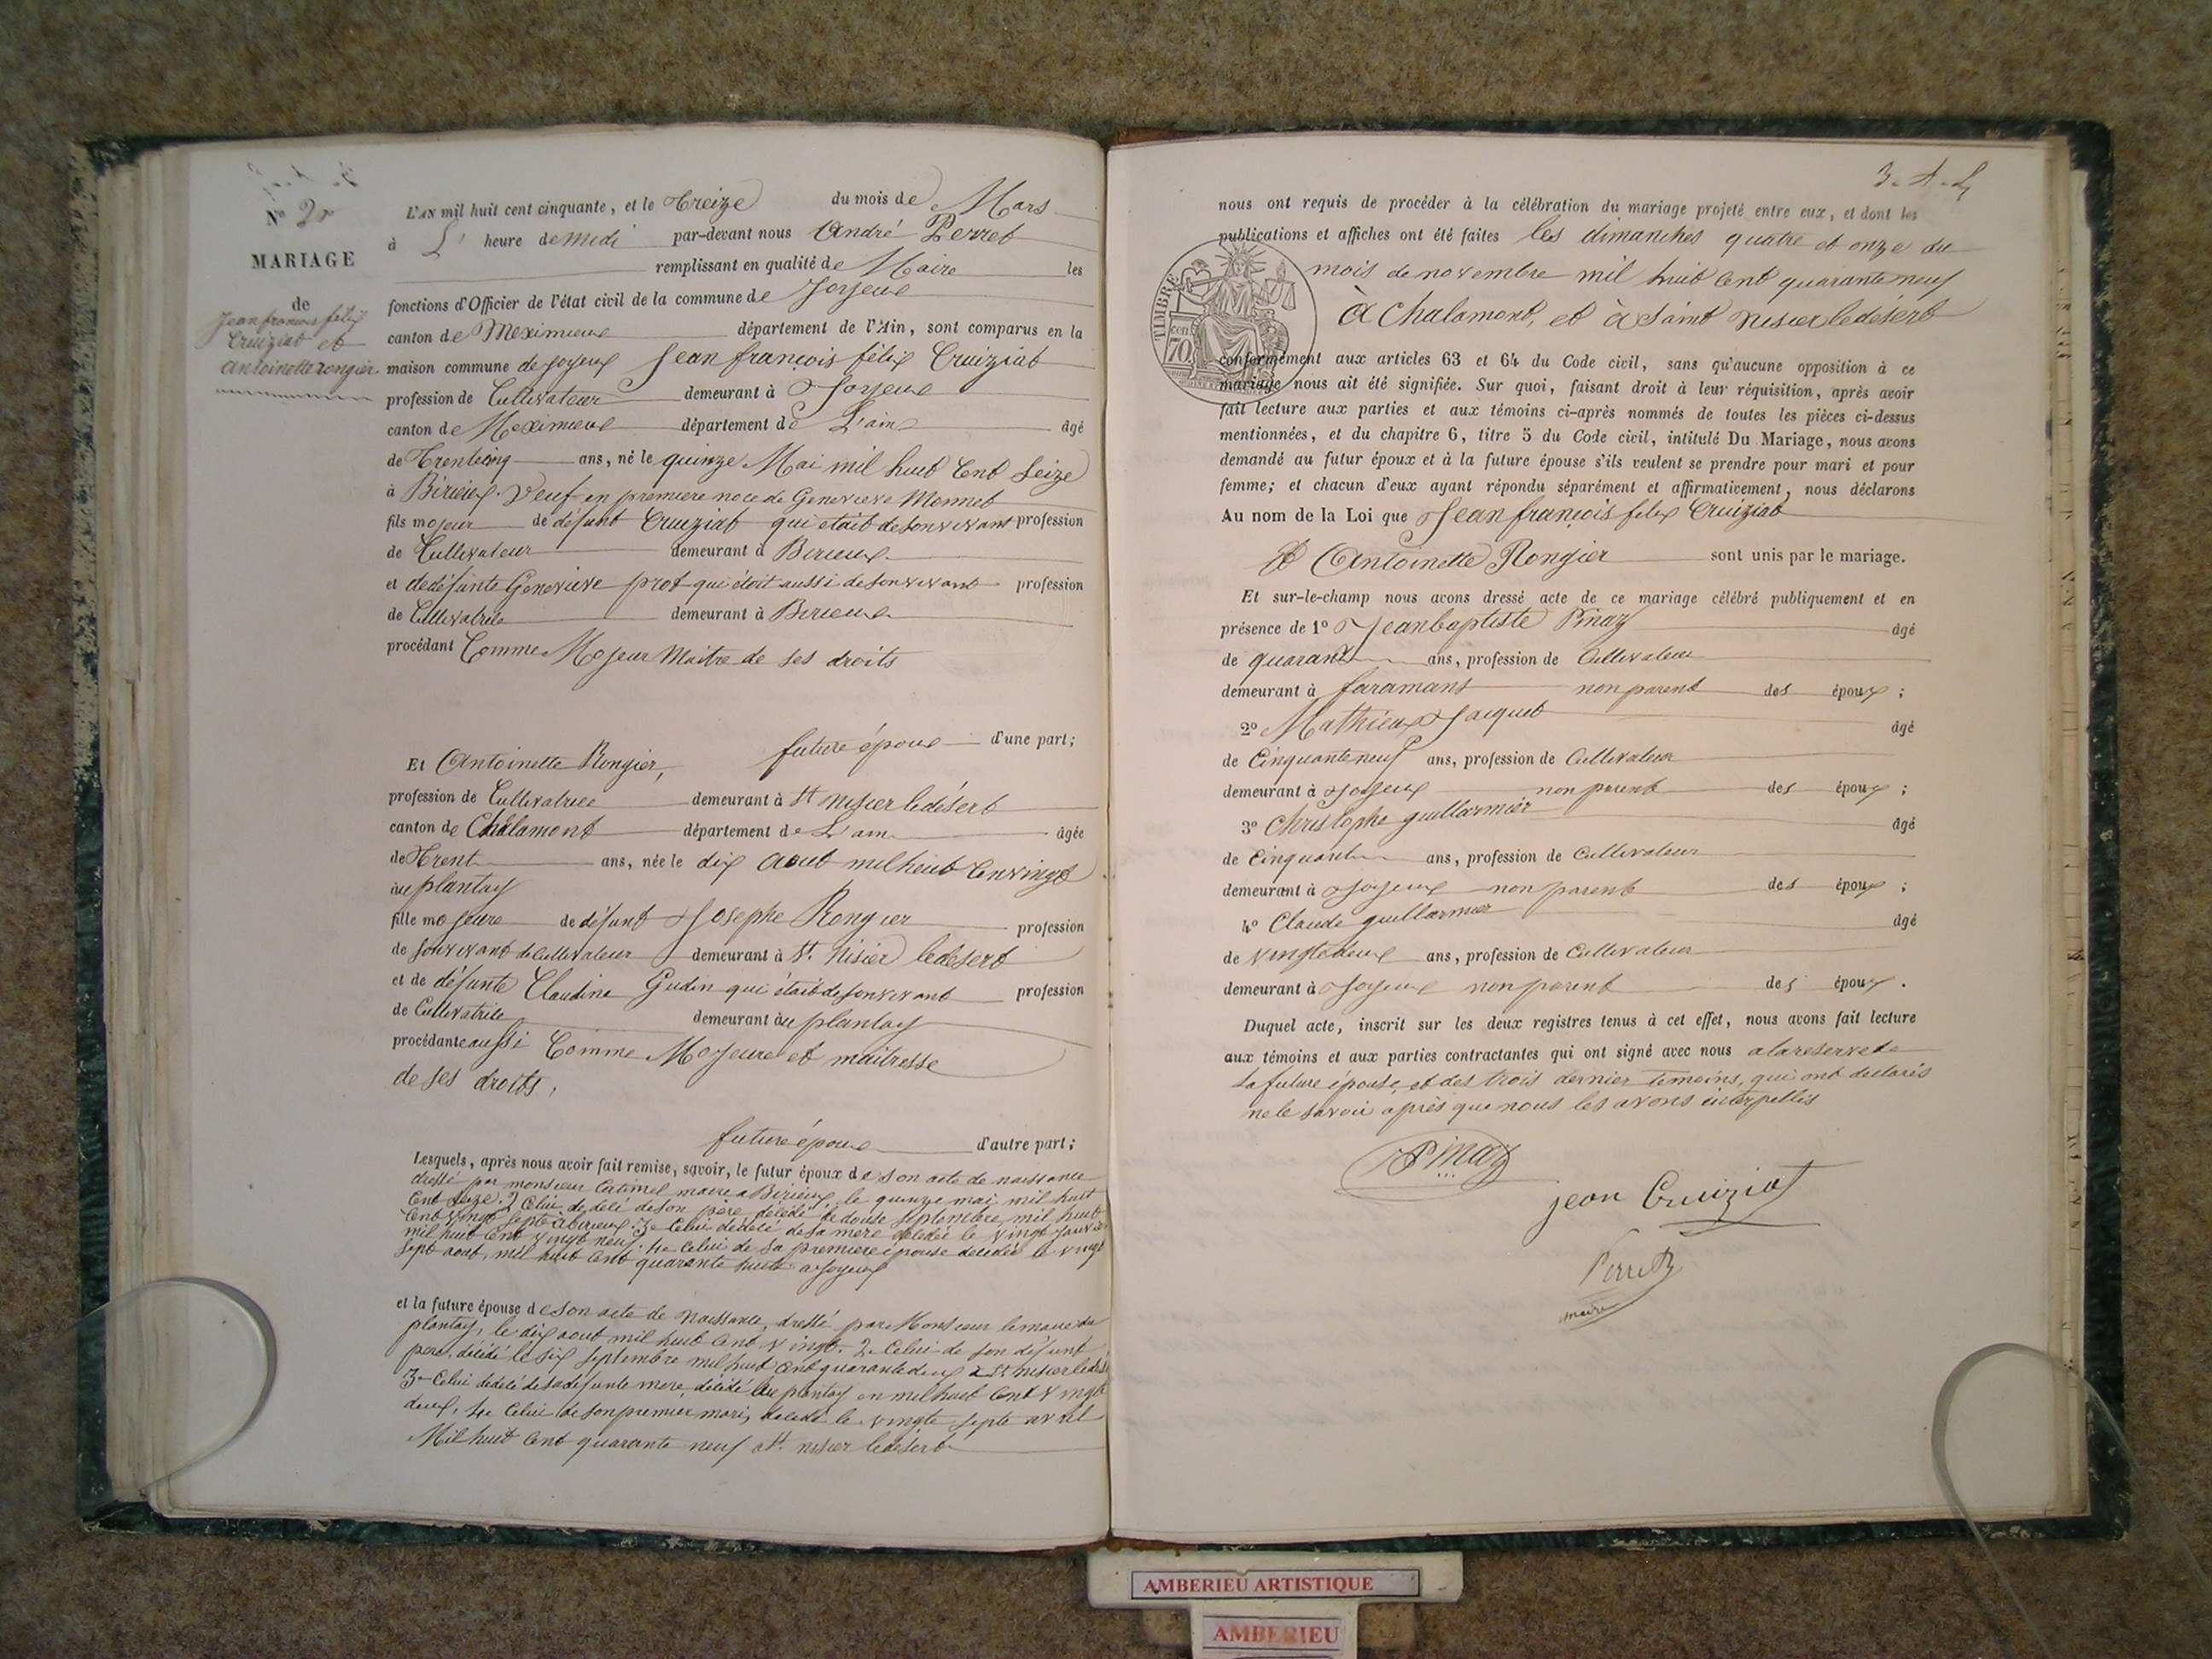 N° 2
MARIAGE
de
Jean francois felix
Cruiziat et
antoinette rongier
L'AN mil huit cent cinquante, et le Treize du mois de Mars
à L' heure de midi par-devant nous André Perret
remplissant en qualité de Maire les
fonctions d'Officier de l'état civil de la commune de Joyeux
canton de Meximieux département de l'Ain, sont comparus en la
maison commune de joyeux Jean françois félix Cruiziat
profession de Cultivateur demeurant à Joyeux
canton de Meximieux département de L'ain âgé
de Trentecinq ans, né le quinze Mai mil huit Cent Seize
à Birieux. Veuf en premiere noce de Genevieve Monnet
fils majeur de défunt Cruiziat qui était de son vivant profession
de Cultivateur demeurant à Birieux
et de défunte Genevieve prot qui étoit aussi de son vivant profession
de Cultivatrice demeurant à Birieux
procédant Comme Majeur Maitre de ses droits
future époux d'une part;
Et Antoinette Rongier,
profession de Cultivatrice demeurant à St nisier ledésert
canton de Châlamont département de L'ain âgée
de Trent ans, née le dix Aout mil huit Cent vingt
au plantay
fille majeure de défunt Josephe Rongier profession
de son vivant de Cultivateur demeurant à St. Nisier ledesert
et de défunte Claudine Gudin qui était de son vivant profession
de Cultivatrice demeurant au plantay
procédante aussi Comme Majeure et maitresse
de ses droits,
future épouse d'autre part;
Lesquels, après nous avoir fait remise, savoir, le futur époux de son acte de naissance
dressé par monsieur maire a Birieux, le quinze mai mil huit
Cent Seize. 2 Celui de délé de son père décédé le douse Septembre mil huit
Cent vingt sept à birieux. 3e Celui de délé de sa mere décédée le vingt
mil huit Cent vingt neuf. 4e Celui de sa premiere épouse décédée le vingt
sept aout, mil huit Cent quarante huit a joyeux
et la future épouse de son acte de Naissance, dressé par Monsieur le maire du
plantay, le dix aout mil huit Cent vingt. 2e Celui de son défunt
pere, décédé le six Septembre mil huit Cent quarante deux a St nisier le
3e Celui de délé de sa défunte mere, décédé au plantay en mil huit Cent vingte
deux, 4e Celui de son premier mari, décédé le vingte septe avril
Mil huit Cent quarante neuf a St. nisier ledésert
nous ont requis de procéder à la célébration du mariage projeté entre eux, et dont les
publications et affiches ont été faites les dimanches quatre et onze du
mois de novembre mil huit Cent quarante neuf
à Chalamont, et à Saint nisier ledésert
TIMBRE
70
conformément aux articles 63 et 64 du Code civil, sans qu'aucune opposition à ce
mariage nous ait été signifiée. Sur quoi, faisant droit à leur réquisition, après avoir
fait lecture aux parties et aux témoins ci-après nommés de toutes les pièces ci-dessus
mentionnées, et du chapitre 6, titre 5 du Code civil, intitulé Du Mariage, nous avons
demandé au futur époux et à la future épouse s'ils veulent se prendre pour mari et pour
femme; et chacun d'eux ayant répondu séparément et affirmativement, nous déclarons
Au nom de la Loi que Jean françois felix Cruiziat
Et Antoinette Rongier sont unis par le mariage.
Et sur-le-champ nous avons dressé acte de ce mariage célébré publiquement et en
présence de 1° Jean baptiste Pinaz âgé
de quarante ans, profession de Cultivateur
demeurant à faramans non parent des époux ;
2° Mathieu Jacquet âgé
de Cinquante neuf ans, profession de Cultivateur
demeurant à Joyeux non parent des époux ;
3° Christophe guillarmier âgé
de Cinquante ans, profession de Cultivateur
demeurant à Joyeux non parent des époux ;
4° Claude guillarmier âgé
de vingtedeux ans, profession de Cultivateur
demeurant à Joyeux non parent des époux .
Duquel acte, inscrit sur les deux registres tenus à cet effet, nous avons fait lecture
aux témoins et aux parties contractantes qui ont signé avec nous a la reserve de
la future épouse, et des trois dernier temoins, qui ont declarés
ne le savoir après que nous les avons interpellis
Pinaz
jean Cruiziat
Perret
maire
AMBERIEU ARTISTIQUE
AMBERIEU